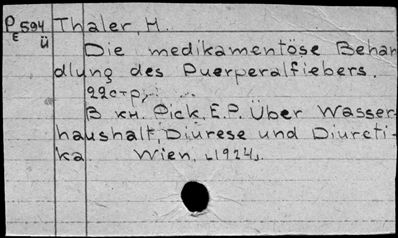 P E 594 ü Thaler, H.
Die medikamentöse Behan-
dlung des Puerperalfiebers.
22стр.
В кн. Pick, E.P. Über Wasser-
haushalt, Diurese und Diureti-
ka. Wien, [1924].